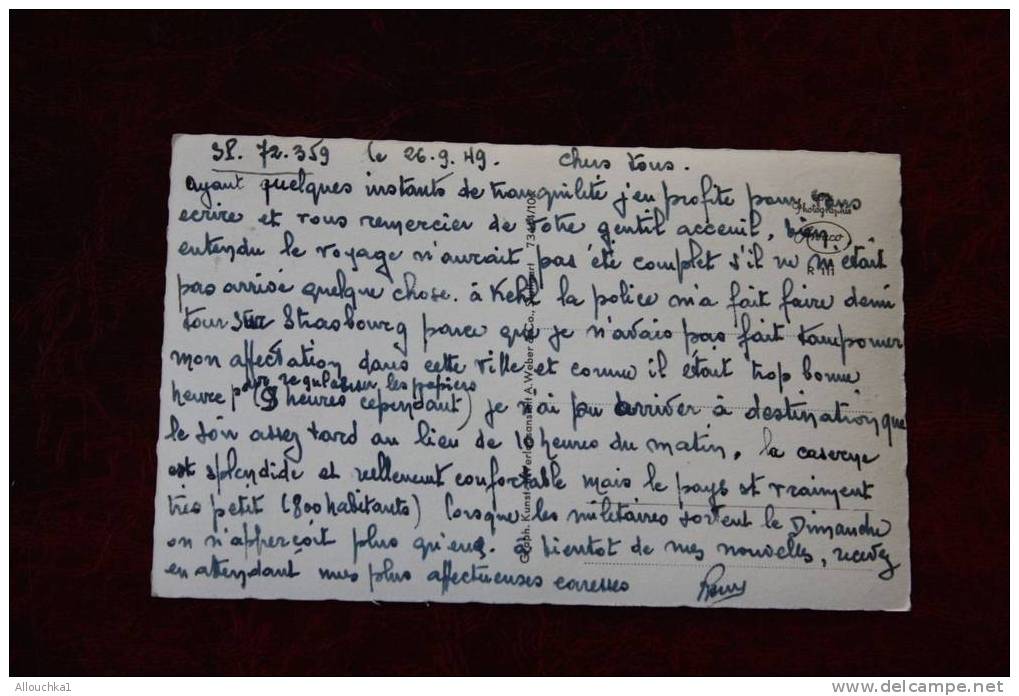 SP. 72.359 le 26.9.49. Chers tous.
Ayant quelques instants de tranquilité j'en profite pour vous
ecrire et vous remercier de votre gentil acceuil, bien
entendu le voyage n'aurait pas été complet s'il ne m'était
pas arrivé quelque chose. à Kehl la police m'a fait faire demi
tour sur Strasbourg parce que je n'avais pas fait tamponner
mon affectation dans cette ville et comme il était trop bonne
heure pour regulariser les papiers
(9 heures cependant) je n'ai pu arriver à destination que
le soir assez tard au lieu de 10 heures du matin, la caserne
est splendide et réellement confortable mais le pays st vraiment
très petit (800 habitants) lorsque les militaires sortent le Dimanche
on n'apperçoit plus qu'eux. à bientot de mes nouvelles, recevez
en attendant mes plus affectueuses caresses
Photographie
R 111
Graph. Kunst- u. Verlagsanstalt A. Weber & Co., Stuttgart
Allouchka1
delcampe.net